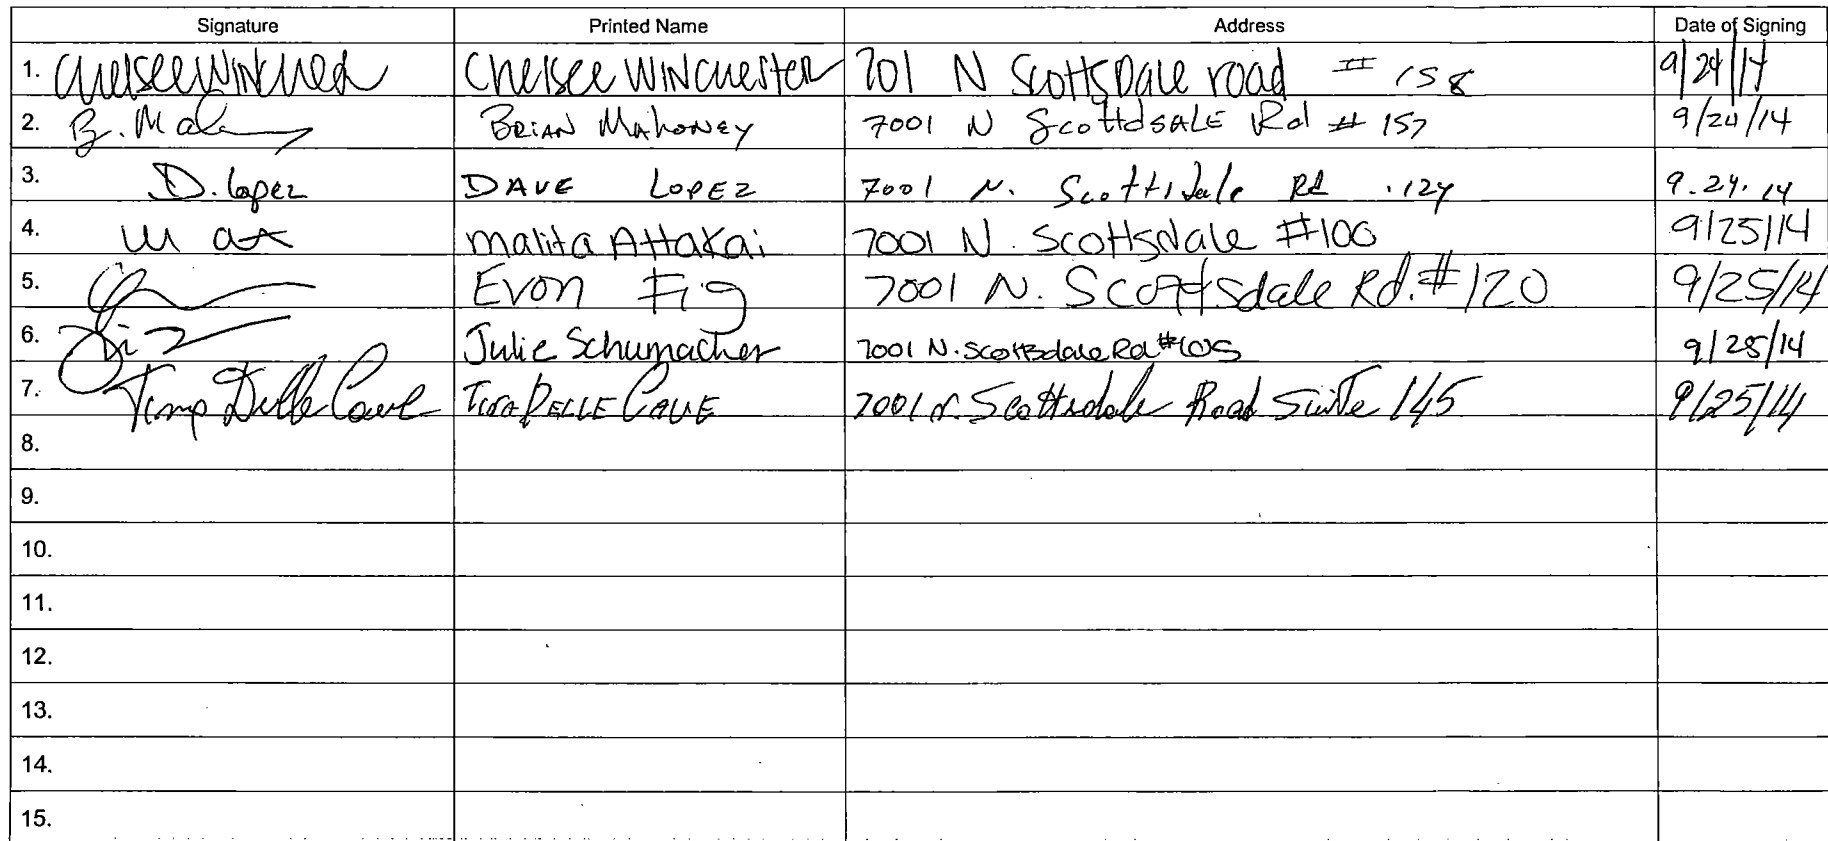 Signature Printed Name Address Date of Signing
1. Chelsee Winchester 701 N Scottsdale road # 158 9/24/14
2. B. Brian Mahoney 7001 N Scottdsale Rd # 157 9/24/14
3. D. Lopez Dave Lopez 7001 N. Scottsdale Rd .124 9.24.14
4. Malita Attakai 7001 N. Scottsdale #100 9/25/14
5. Evon Fig 7001 N. Scottsdale Rd. #120 9/25/14
6. Julie Schumacher 7001 N. Scottsdale Rd #105 9/25/14
7. Delle Cave Delle Cave 7001 N. Scottsdale Road Suite 145 9/25/14
8.
9.
10.
11.
12.
13.
14.
15.